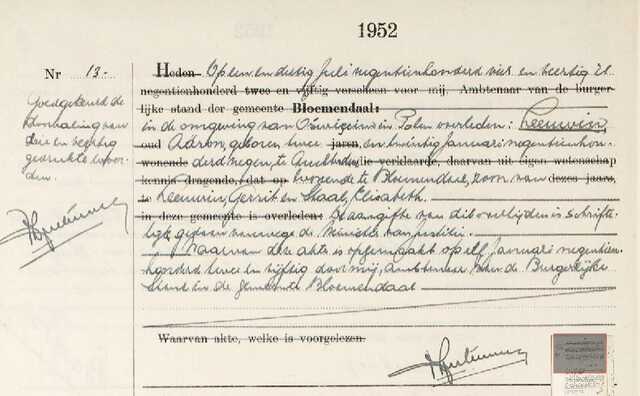 1952
Nr 13.
Goedgekeurd de
doorhaling van
drie en veertig
gedrukte woor-
den.
Heden Op een en dertig Juli negentienhonderd vier en veertig is
negentienhonderd twee en vijftig verscheen voor mij, Ambtenaar van de burger-
lijke stand der gemeente Bloemendaal:
in de omgeving van in Polen overleden: Leeuwin,
oud Adron, geboren twee jaren, en twintig januari negentienhon-
wonende derd negen, te die verklaarde, daarvan uit eigen wetenschap
kennis dragende, dat op wonende te Bloemendaal, zoon van dezes jaars,
te Leeuwin, Gerrit en Staal, Elisabeth.
in deze gemeente is overleden: De aangifte van dit overlijden is schrifte-
lijk gedaan vanwege de Minister van Justitie.
Waarvan deze akte is opgemaakt op elf Januari negentien-
honderd twee en vijftig door mij, ambtenaar van de Burgerlijke
Stand in de gemeente Bloemendaal
Waarvan akte, welke is voorgelezen.